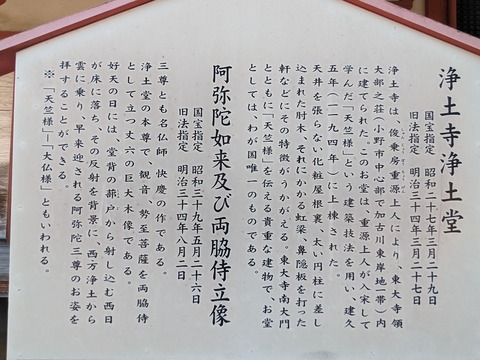 浄土寺浄土堂
国宝指定 昭和二十七年三月二十九日
旧法指定 明治三十四年三月二十七日
浄土寺は、俊乗房重源上人により、東大寺領
大部之荘(小野市中心部で加古川東岸地一帯)内
に建てられた。このお堂は、重源上人が入宋して
学んだ「天竺様」という建築技法を用い、建久
五年(一一九四年)に上棟された。
天井を張らない化粧屋根裏、太い円柱に差し
込まれた肘木、それにかかる虹梁、鼻隠板を打った
軒などにその特徴がうかがえる。東大寺南大門
とともに「天竺様」を伝える貴重な建物で、お堂
としては、わが国唯一のものである。
阿弥陀如来及び両脇侍立像
国宝指定 昭和三十九年五月二十六日
旧法指定 明治三十四年八月二日
三尊とも名仏師 快慶の作である。
浄土堂の本尊で、観音、勢至菩薩を両脇侍
として立つ丈六の巨大木像である。
好天の日には、堂背の蔀戸から射し込む西日
が床に落ち、その反射を背景に、西方浄土から
雲に乗り、早来迎される阿弥陀三尊のお姿を
拝することができる。
※「天竺様」=「大仏様」ともいわれる。